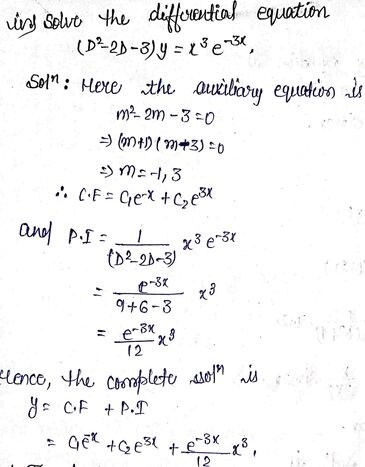 iii) Solve the differential equation
(D²-2D-3)y = x³ e⁻³ˣ.
Solⁿ: Here the auxiliary equation is
m²-2m-3=0
⇒ (m+1)(m-3)=0
⇒ m=-1, 3
∴ C.F = C₁e⁻ˣ + C₂e³ˣ
and P.I = 1/(D²-2D-3) x³ e⁻³ˣ
= e⁻³ˣ/(9+6-3) x³
= e⁻³ˣ/12 x³
Hence, the complete solⁿ is
y = C.F + P.I
= C₁e⁻ˣ + C₂e³ˣ + e⁻³ˣ/12 x³,